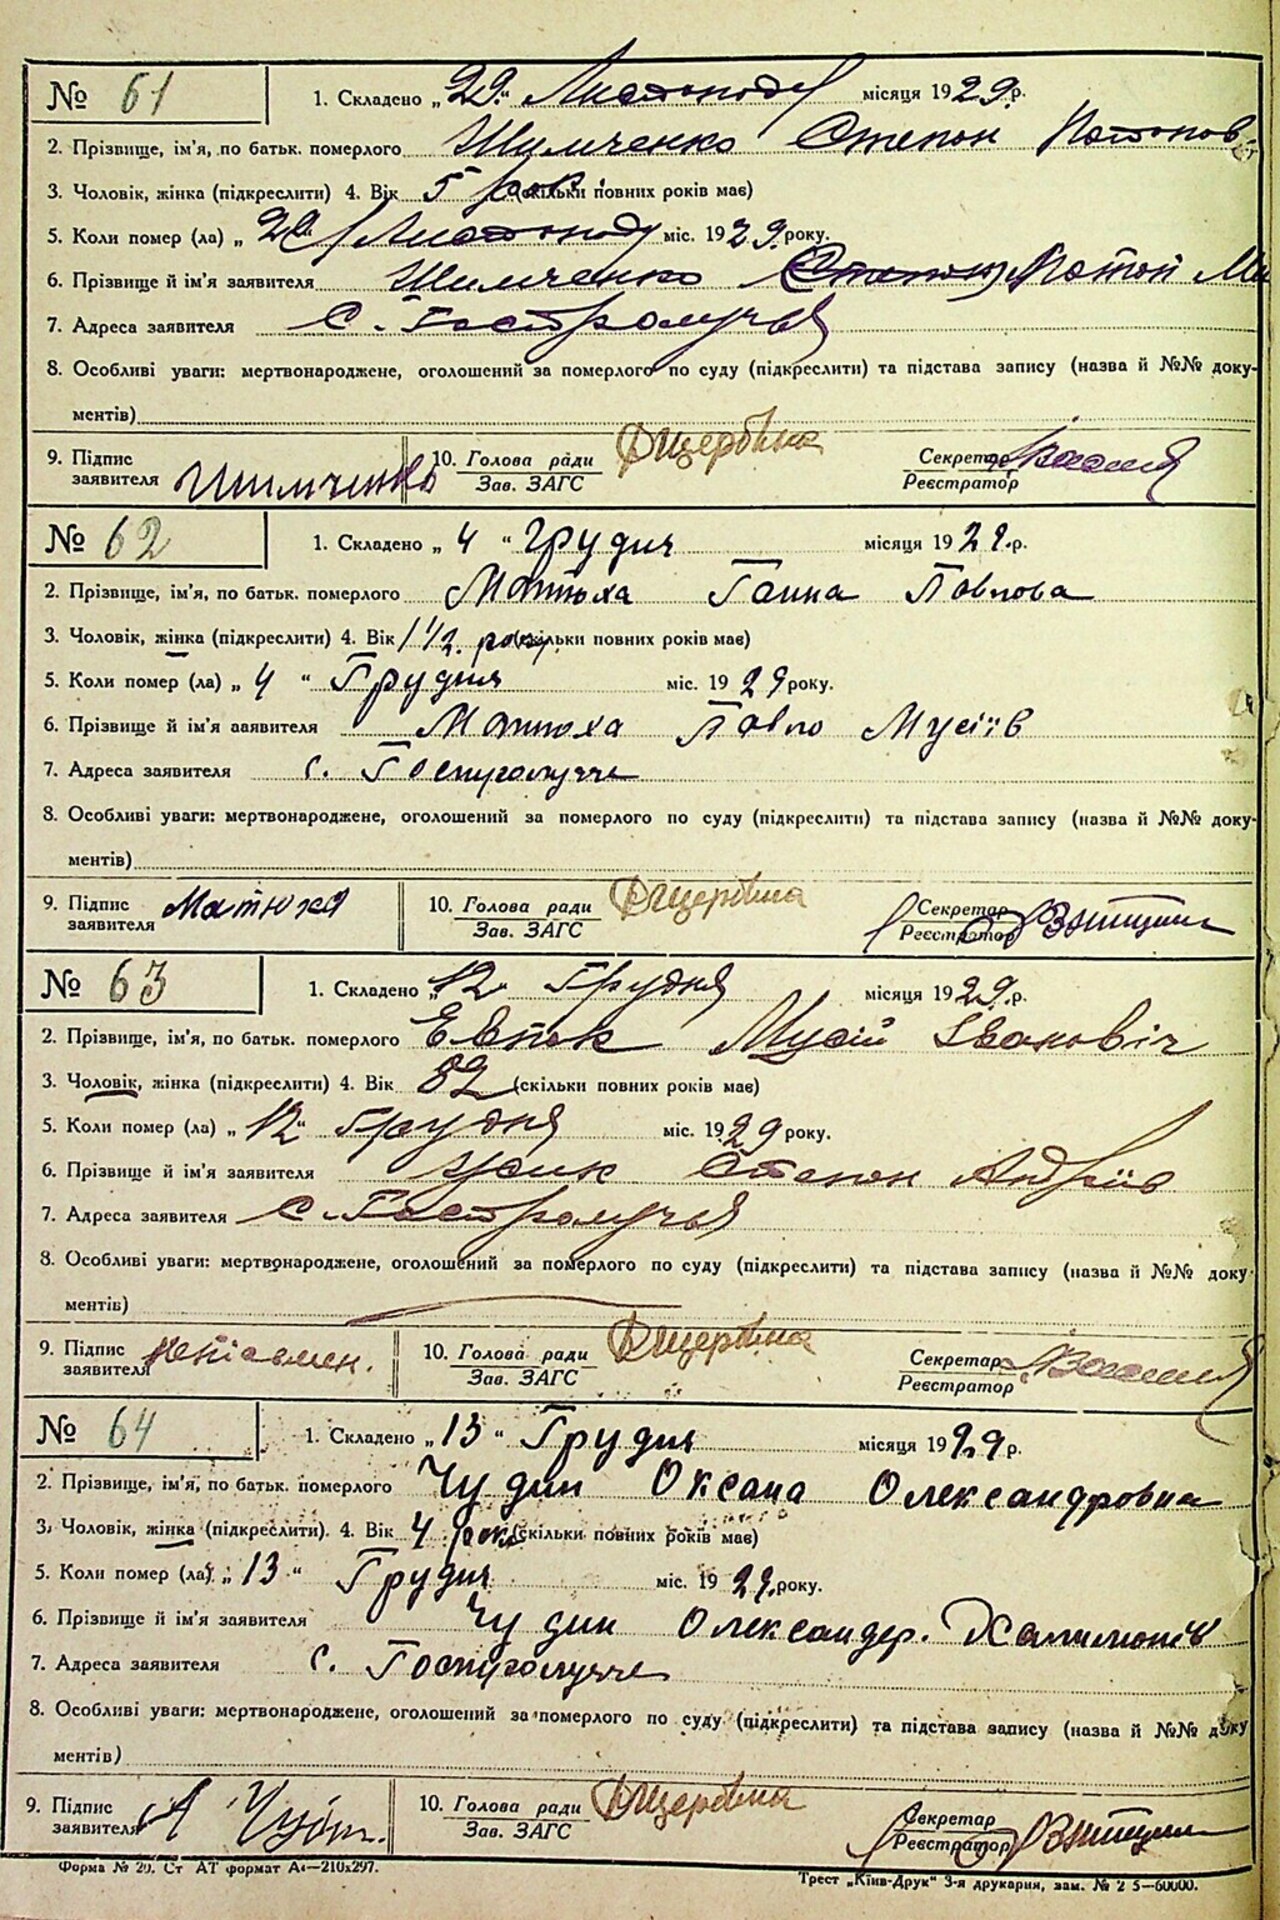 № 61 1. Складено „29“ Листопода місяця 1929 р.
2. Прізвище, ім'я, по батьк. померлого Шимченко Степон Потопов
3. Чоловік, жінка (підкреслити) 4. Вік 5 рок. (скільки повних років має)
5. Коли помер (ла) „ Листоподу міс. 1929 року.
6. Прізвище й ім'я заявителя Шимченко
7. Адреса заявителя С. Гостролуччя
8. Особливі уваги: мертвонароджене, оголошений за померлого по суду (підкреслити) та підстава запису (назва й №№ доку-
ментів)
9. Підпис заявителя Шимченко 10. Голова ради Зав. ЗАГС Щербина Секретар Реєстратор
№ 62 1. Складено „4“ Грудня місяця 1929 р.
2. Прізвище, ім'я, по батьк. померлого Матюха Ганна Павлова
3. Чоловік, жінка (підкреслити) 4. Вік 1 1/2 року. (скільки повних років має)
5. Коли помер (ла) „4“ Грудня міс. 1929 року.
6. Прізвище й ім'я заявителя Матюха Павло Мусіїв
7. Адреса заявителя с. Гостролуччє
8. Особливі уваги: мертвонароджене, оголошений за померлого по суду (підкреслити) та підстава запису (назва й №№ доку-
ментів)
9. Підпис заявителя Матюха 10. Голова ради Зав. ЗАГС Щербина Секретар Реєстратор
№ 63 1. Складено „12“ Грудня місяця 1929 р.
2. Прізвище, ім'я, по батьк. померлого Мусій Івановіч
3. Чоловік, жінка (підкреслити) 4. Вік 82 (скільки повних років має)
5. Коли помер (ла) „12“ Грудня міс. 1929 року.
6. Прізвище й ім'я заявителя Усик Степон Андріїв
7. Адреса заявителя С. Гостролуччя
8. Особливі уваги: мертвонароджене, оголошений за померлого по суду (підкреслити) та підстава запису (назва й №№ доку-
ментів)
9. Підпис заявителя неписьмен. 10. Голова ради Зав. ЗАГС Щербина Секретар Реєстратор
№ 64 1. Складено „13“ Грудня місяця 1929 р.
2. Прізвище, ім'я, по батьк. померлого Чудин Оксана Олександровна
3. Чоловік, жінка (підкреслити). 4. Вік 4 роки (скільки повних років має)
5. Коли помер (ла) „13“ Грудня міс. 1929 року.
6. Прізвище й ім'я заявителя Чудин Олександер. Халимонів
7. Адреса заявителя с. Гостролуччє
8. Особливі уваги: мертвонароджене, оголошений за померлого по суду (підкреслити) та підстава запису (назва й №№ доку
ментів)
9. Підпис заявителя А Чудин. 10. Голова ради Зав. ЗАГС Щербина Секретар Реєстратор
Форма № 20. Ст АТ формат А4—210x297. Трест „Київ-Друк“ 3-я друкария, зам. № 2 5—60000.